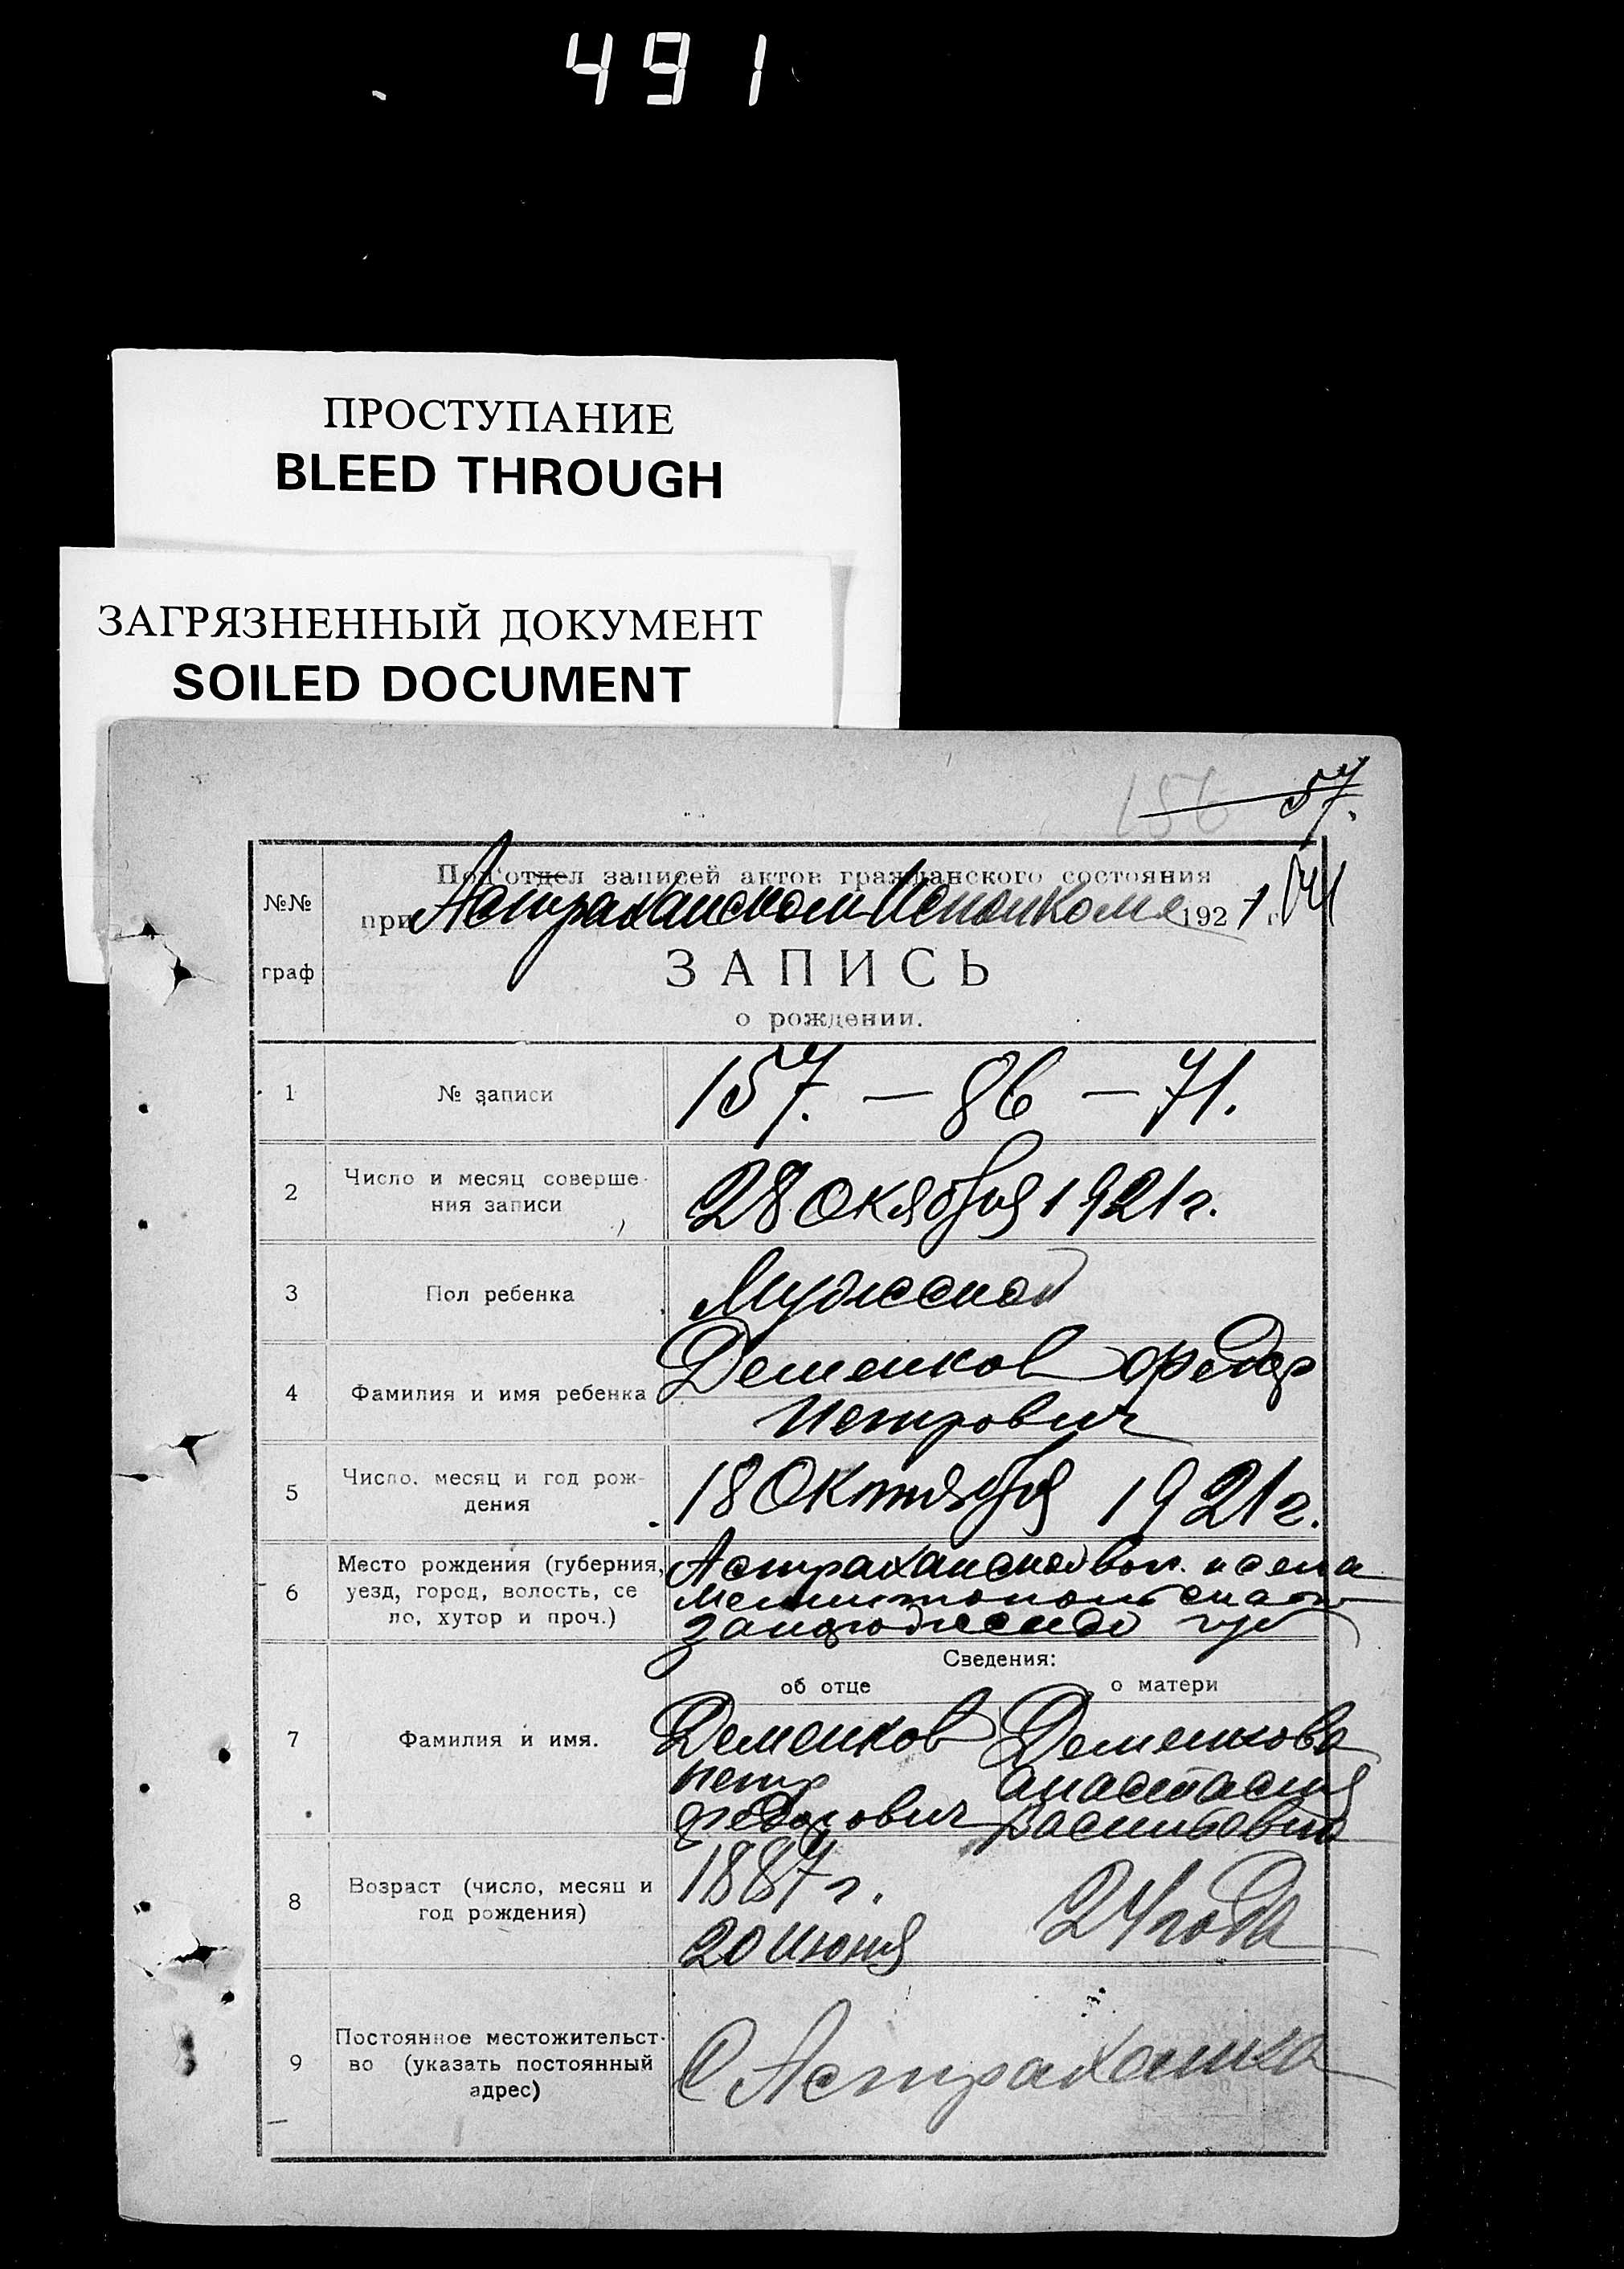 491
ПРОСТУПАНИЕ
BLEED THROUGH
ЗАГРЯЗНЕННЫЙ ДОКУМЕНТ
SOILED DOCUMENT
156 57.
№№ граф
Под'отдел записей актов гражданского состояния
при Астраханском Исполкоме 1921 г.
ЗАПИСЬ
о рождении.
1 № записи 157. — 86 — 71.
2 Число и месяц соверше-
ния записи
28 Окября 1921 г.
3 Пол ребенка Мужской
4 Фамилия и имя ребенка Деменков Федор
Петрович
5 Число, месяц и год рож-
дения
18 Октября 1921 г.
6 Место рождения (губерния,
уезд, город, волость, се
ло, хутор и проч.)
Астраханской вол. и села
Мелитополь
губ
Сведения:
об отце о матери
7 Фамилия и имя.
Деменков Деменкова
Петр Анастасия
Федорович
8 Возраст (число, месяц и
год рождения)
1887 г. 24 года
20 Июня
9 Постоянное местожительст-
во (указать постоянный
адрес)
С Астраханка